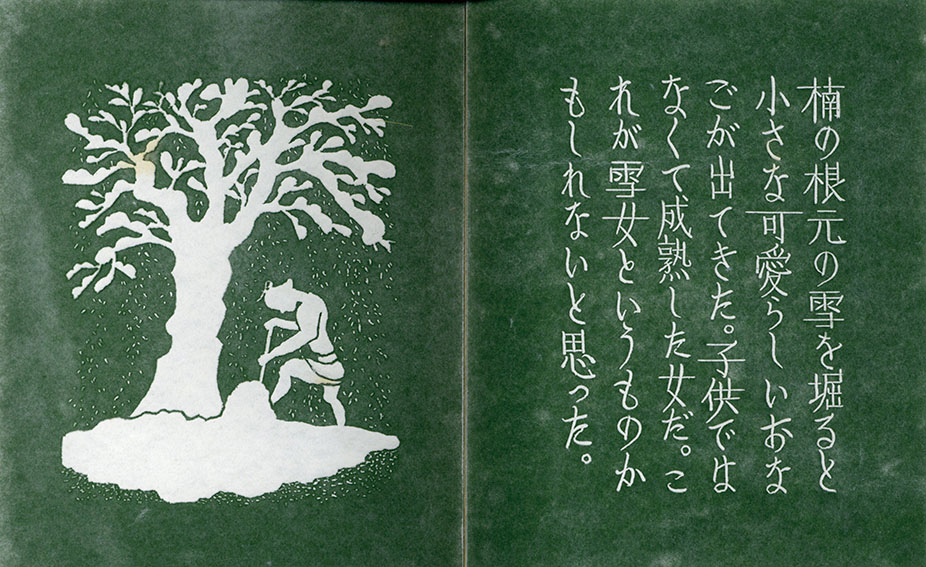 楠の根元の雪を堀ると
小さな可愛らしいおな
ごが出てきた。子供では
なくて、成熟した女だ。こ
れが雪女というものか
もしれないと思った。